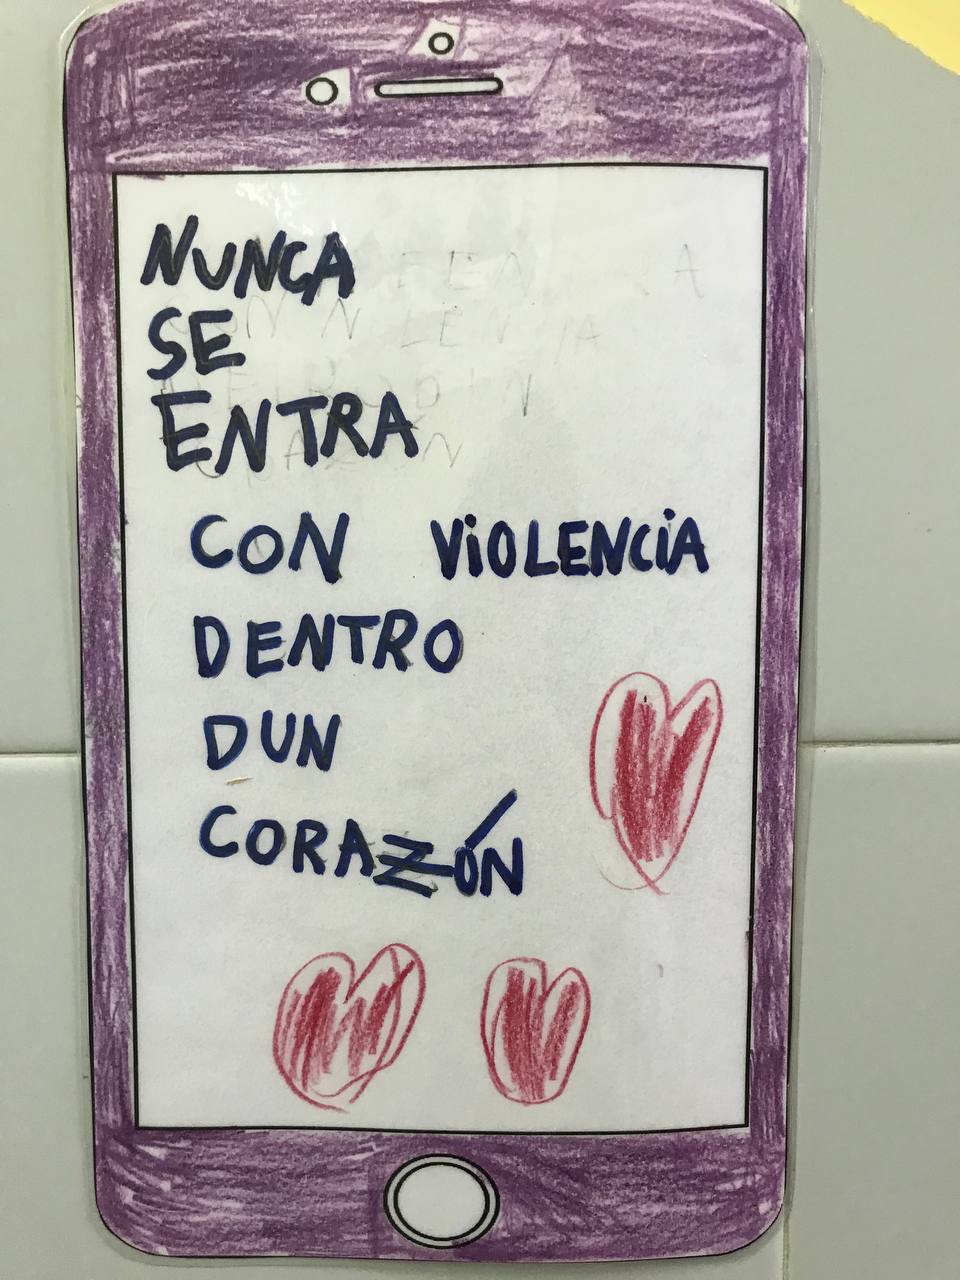 NUNCA
SE
ENTRA
CON VIOLENCIA
DENTRO
DUN
CORAZÓN